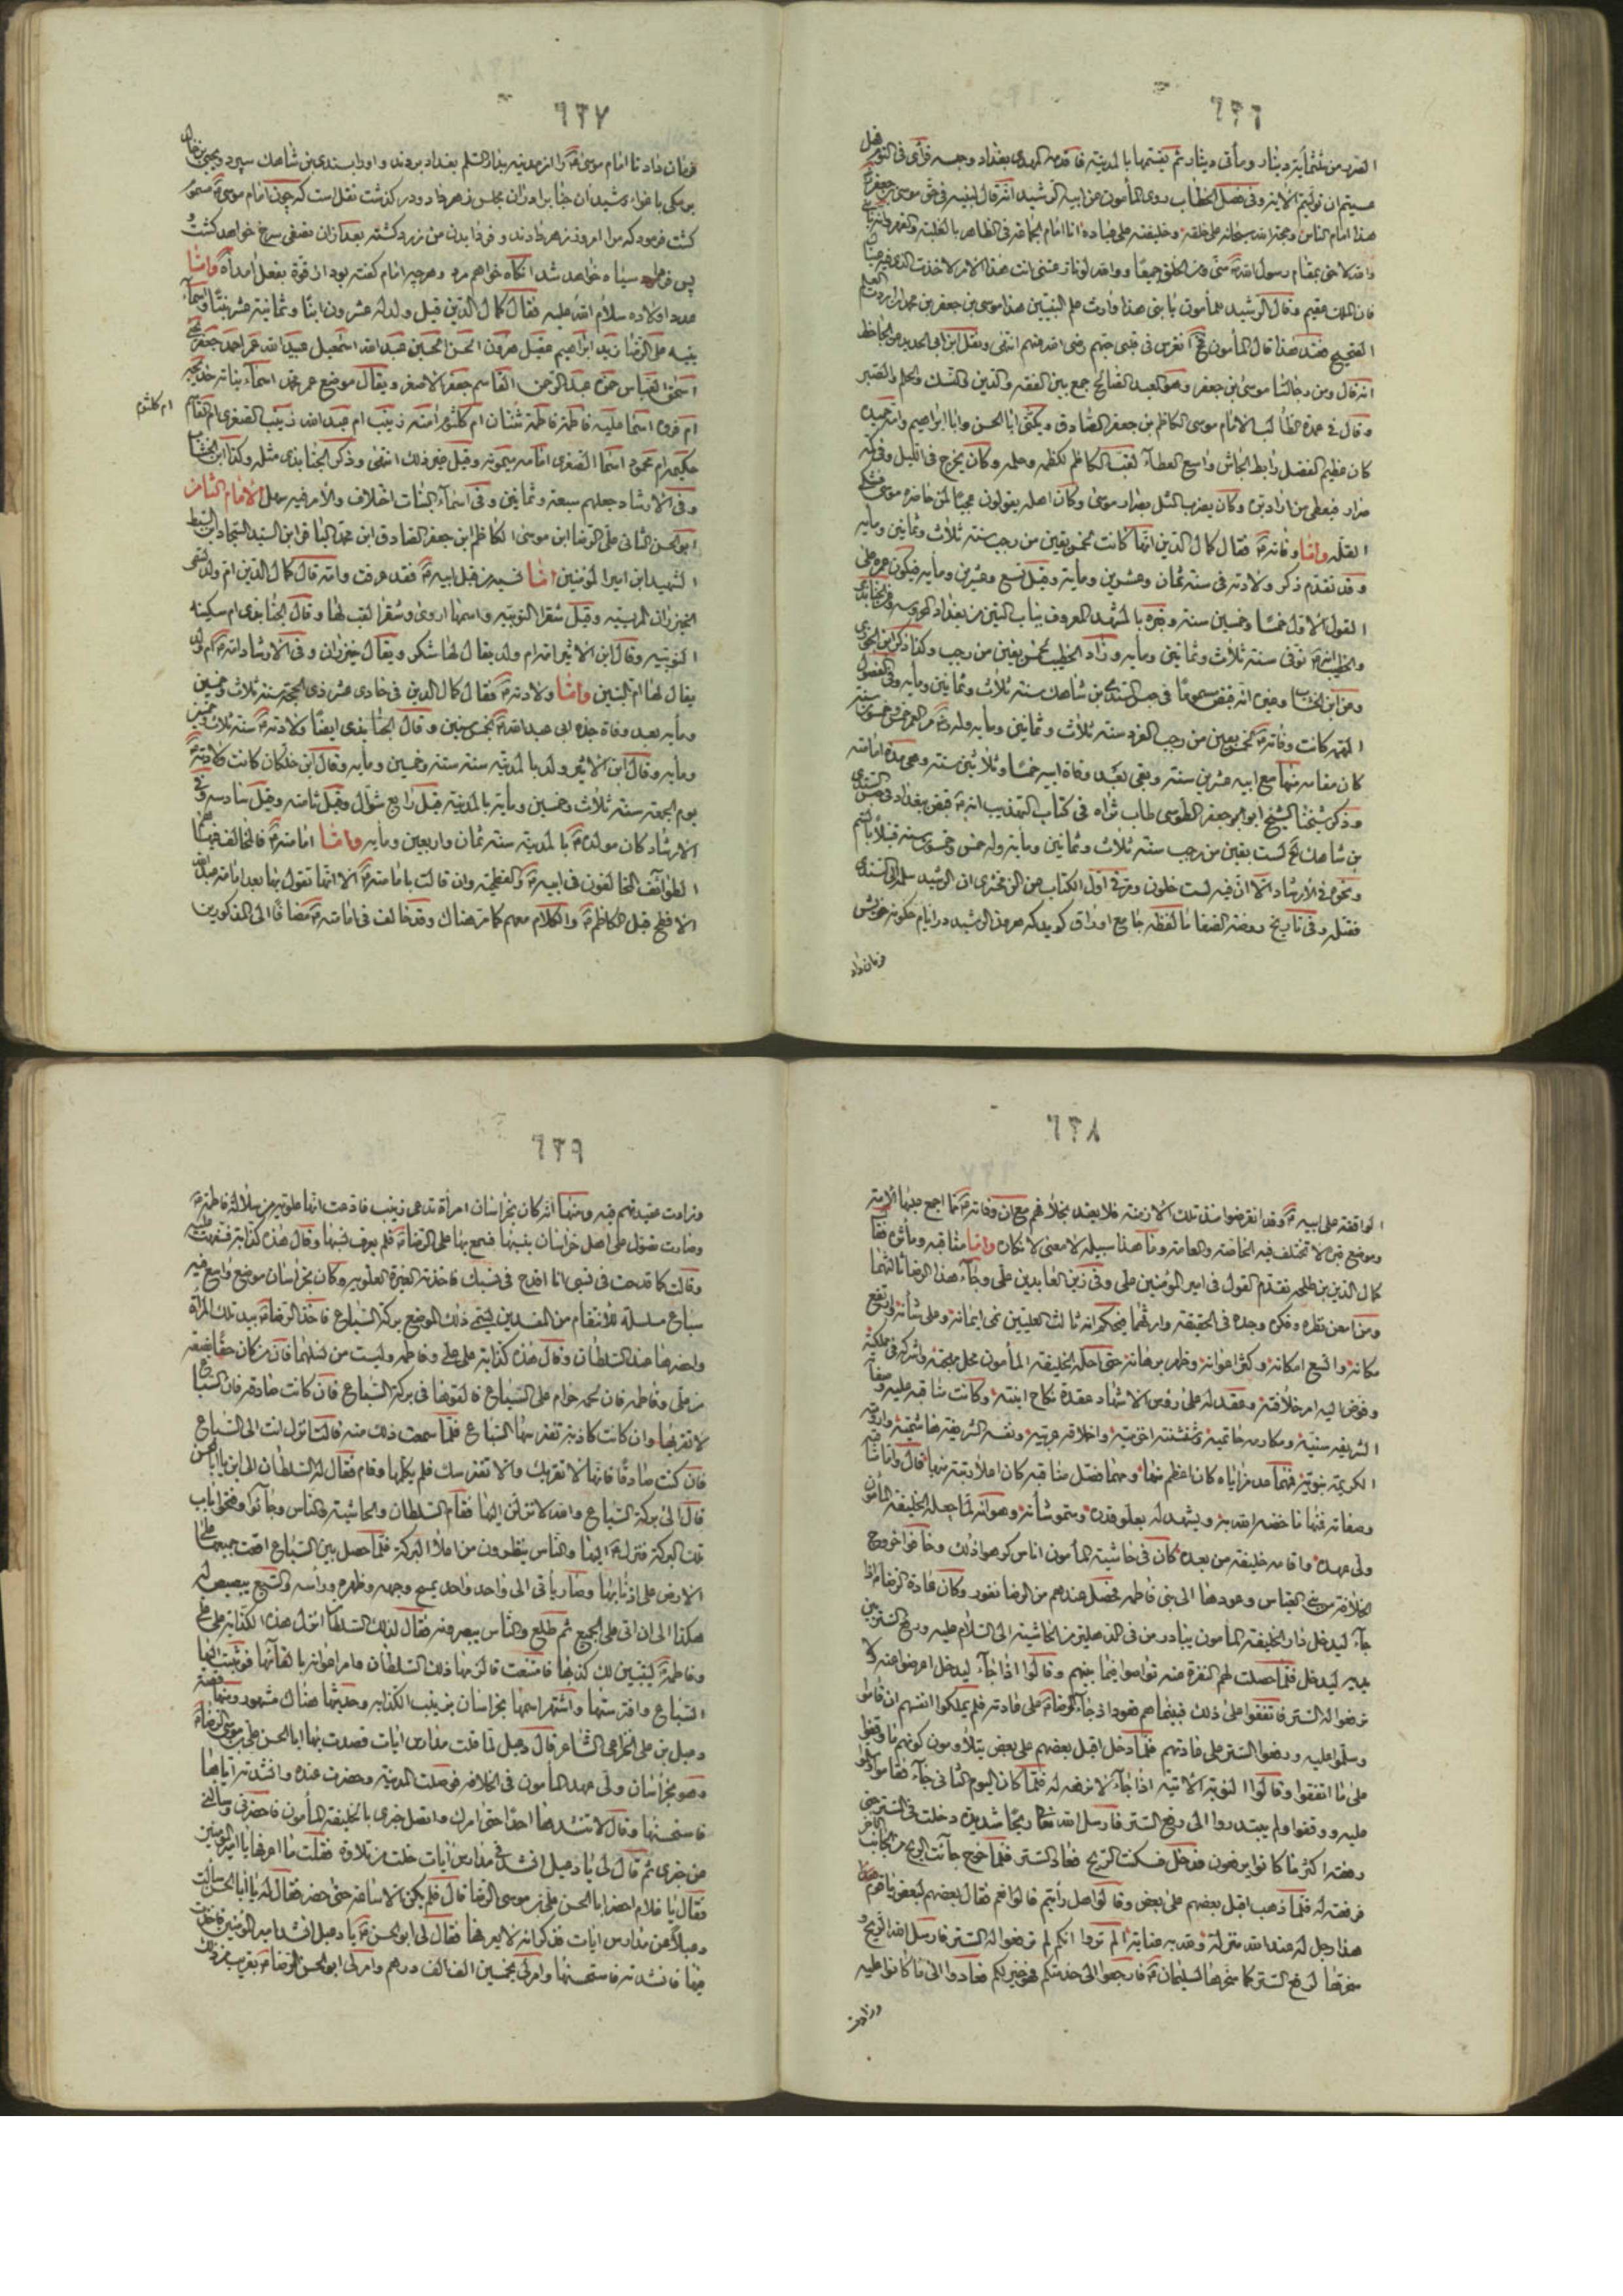 ٦٣٦
الصرر من ثلثمأية دينار ومأتى دينار ثم يقسمها بالمدينة فاقدمه المهدى بغداد وحبسه فرأى فى النوم فهل
عسيتم ان توليتم الآية وفى فصل الخطاب روى المأمون عن ابيه الرشيد انه قال لبنيه فى حق موسى بن جعفر
هذا امام الناس وحجة الله سبحانه على خلقه وخليفته على عباده انا امام الجماعة فى الظاهر بالغلبة والقهر وانه
والله لاحق بمقام رسول الله منى ومن الخلق جميعا ووالله لو نازعتنى انت هذا الامر لاخذت الذى فيه عيناك
فان الملك عقيم وقال الرشيد للمأمون يا بنى هذا وارث علم النبيين هذا موسى بن جعفر بن محمد ان اردت العلم
الصحيح فعند هذا قال المأمون فح انغرس فى قلبى حبهم رضى الله عنهم انتهى ونقل ابن ابى الحديد عن الجاحظ
انه قال ومن رجالنا موسى بن جعفر وهو العبد الصالح جمع بين الفقه والدين والنسك والحلم والصبر
وقال فى عمدة الطالب الامام موسى الكاظم بن جعفر الصادق ويكنى ابا الحسن وابا ابراهيم وامه حميدة
كان عظيم الفضل رابط الجاش واسع العطاء لقب الكاظم لكظمه وحلمه وكان يخرج فى الليل وفى كمه
صرار فيعطى من اراد بره وكان يضرب المثل بصرار موسى وكان اهله يقولون عجبا لمن جاءته صرة موسى فشكى
القلة واما وفاته فقال كمال الدين انها كانت لخمس بقين من رجب سنة ثلاث وثمانين ومأية
وقد تقدم ذكر ولادته فى سنة ثمان وعشرين ومأية وقيل تسع وعشرين ومأية فيكون عمره على
القول الاول خمسا وخمسين سنة وقبره بالمشهد المعروف بباب التين من بغداد
والخطيب انه توفى سنة ثلاث وثمانين ومأية وزاد الخطيب لخمس بقين من رجب وكذا ذكر ابن الجوزى
وعن ابن الخشاب وغيره انه قبض مسموما فى حبس السندى بن شاهك سنة ثلاث وثمانين ومأية وفى الفصول
المهمة كانت وفاته لخمس بقين من رجب الفرد سنة ثلاث وثمانين ومأية وله من العمر خمس وخمسون سنة
كان مقامه منها مع ابيه عشرين سنة وبقى بعد وفاة ابيه خمسا وثلاثين سنة وهى مدة امامته
وذكر شيخنا الشيخ ابو جعفر الطوسى طاب ثراه فى كتاب التهذيب انه قبض ببغداد فى حبس السندى
بن شاهك لست بقين من رجب سنة ثلاث وثمانين ومأية وله خمس وخمسون سنة قتيلا بالسم
ونحوه فى الارشاد الا ان فيه لست خلون ومر فى اول الكتاب عن الزمخشرى ان الرشيد سلمه الى السندى
فقتله وفى تاريخ روضة الصفا ما لفظه جامع اوراق كويد كه هرون الرشيد در ايام حكومة خويش
فرمان داد
٦٣٧
فرمان داد تا امام موسى را از مدينه بدار السلم بغداد بردند و او را بسندى بن شاهك سپرد ويحيى بن خالد
برمكى باغواء رشيد آن جناب را در آن مجلس زهر داد ودر كذشت نقل است كه چون امام موسى مسموم
كشت فرمود كه مرا امروز زهر دادند و فردا بدن من زرد كشته بعد از آن نصفى سرخ خواهد كشت و
پس فردا سياه خواهد شد انكاه خواهم مرد وهرچه امام كفته بود از قوة بفعل آمد آه واما
عدد اولاده سلام الله عليه فقال كمال الدين قيل ولد له عشرون ابنا وثمانية عشر بنتا واسماء
بنيه على الرضا زيد ابراهيم عقيل هرون الحسن الحسين عبد الله اسمعيل عبيد الله عمر احمد جعفر يحيى
اسحق العباس حمزة عبد الرحمن القاسم جعفر الاصغر ويقال موضع عمر محمد اسماء بناته خديجة
ام فروة اسما علية فاطمة فاطمة ثنتان ام كلثوم آمنه زينب ام عبد الله زينب الصغرى ام القاسم
ام كلثوم
حكيمه ام محمود اسما الصغرى امامه ميمونه وقيل غير ذلك انتهى وذكر الجنابذى مثله وكذا ابن الخشاب
وفى الارشاد جعلهم سبعة وثمانين وفى اسماء البنات اختلاف والامر فيه سهل الامام الثامن
ابو الحسن الثانى على الرضا ابن موسى الكاظم ابن جعفر الصادق ابن محمد الباقر ابن السيد السجاد ابن السبط
الشهيد ابن امير المؤمنين اما نسبه من قبل ابيه فقد عرفت وامه قال كمال الدين ام ولد تسمى
الخيزران المريسيه وقيل شقرا النوبيه واسمها اروى وشقرا لقب لها وقال الجنابذى ام سكينه
النوبيه وقال ابن الاثير امه ام ولد يقال لها سكن ويقال خيزران وفى الارشاد امه ام ولد
يقال لها ام البنين واما ولادته فقال كمال الدين فى حادى عشر ذى الحجه سنة ثلاث وخمسين
ومأيه بعد وفاة جده ابى عبد الله بخمس سنين وقال الجنابذى ايضا ولادته سنة ثلاث وخمسين
ومأيه وقال ابن الاثير ولد بالمدينه سنة ستة وخمسين ومأيه وقال ابن خلكان كانت ولادته
يوم الجمعة سنة ثلاث وخمسين ومأية بالمدينة قيل رابع شوال وقيل ثامنه وقيل سادسه وفى
الارشاد كان مولده بالمدينه سنة ثمان واربعين ومأيه واما امامته فالمخالف فيها
الطوائف المخالفون فى ابيه والفطحية وان قالت بامامته الا انها تقول بها بعد امامة عبد الله
الافطح قبل الكاظم والكلام معهم كما مر هناك وقد خالف فى امامته مضافا الى المذكورين
٦٣٨
الواقفة على ابيه وقد انقرضوا منذ تلك الازمنه فلا يعتد بخلافهم مع ان وفاته مما اجمع عليها الامة
وموضع قبره لا تختلف فيه الخاصة والعامة وما هذا سبيله لا معنى لانكاره واما مناقبه ومأثره فقال
كمال الدين بن طلحه تقدم القول فى امير المؤمنين على وفى زين العابدين على وجاء هذا الرضا ثالثهما
ومن امعن نظره وفكره وجده فى الحقيقة وارثهما فيحكم انه ثالث العليين نمى ايمانه وعلى شأنه وارتفع
مكانه واتسع امكانه وكثر اعوانه وظهر برهانه حتى احله الخليفة المأمون محل مهجته واشركه فى مملكته
وفوض اليه امر خلافته وعقد له على رؤس الاشهاد عقدة نكاح ابنته وكانت مناقبه عليه وصفاته
الشريفه سنية ومكارمه حاتميه وشنشنته اخزميه واخلاقه عربيه ونفسه الشريفة هاشمية وارومته
الكريمة نبوية فمهما عد مزاياه كان اعظم منها ومهما فصل مناقبه كان اعلا رتبة منها قال واما مناقبه
وصفاته فمنها ما خصه الله به ويشهد له بعلو قدره وسمو شأنه وهو انه لما جعله الخليفة المأمون
ولى عهده واقامه خليفة من بعده كان فى حاشية المأمون اناس كرهوا ذلك وخافوا خروج
الخلافة من بنى العباس وعودها الى بنى فاطمه فحصل عندهم من الرضا نفور وكان عادة الرضا اذا
جاء ليدخل دار الخليفة المأمون يبادر من فى الدهليز من الحاشية الى السلام عليه ورفع الستر بين
يديه ليدخل فلما حصلت لهم النفرة عنه تواصوا فيما بينهم وقالوا اذا جاء ليدخل اعرضوا عنه لا
ترفعوا له الستر فاتفقوا على ذلك فبينما هم قعود اذ جاء الرضا على عادته فلم يملكوا انفسهم ان قاموا
وسلموا عليه ورفعوا الستر على عادتهم فلما دخل اقبل بعضهم على بعض يتلاومون كونهم ما وقفوا
على ما اتفقوا وقالوا النوبة الاتية اذا جاء لا نرفعه له فلما كان اليوم الثانى جاء فقاموا وسلموا
عليه ووقفوا ولم يبتدروا الى رفع الستر فارسل الله تعا ريحا شديدة دخلت فى الستر حتى
رفعته اكثر ما كانوا يرفعون فدخل فسكنت الريح فعاد الستر فلما خرج جائت الريح من الجانب الاخر
فرفعته له فلما ذهب اقبل بعضهم على بعض وقالوا هل رأيتم قالوا نعم فقال بعضهم لبعض يا قوم
هذا رجل له عند الله منزلة ولله به عناية الم تروا انكم لم ترفعوا له الستر فارسل الله الريح و
سخرها لرفع الستر كما سخرها لسليمان فارجعوا الى خدمتكم فهو خير لكم فعادوا الى ما كانوا عليه
وزادت
٦٣٩
وزادت عقيدتهم فيه ومنها انه كان بخراسان امرأة تدعى زينب فادعت انها علويه من سلالة فاطمه
وصارت تصول على اهل خراسان بنسبها فسمع بها على الرضا فلم يعرف نسبها وقال هذه كذابة فسفهت عليه
وقالت كما قدحت فى نسبى انا اقدح فى نسبك فاخذته الغيرة العلويه وكان بخراسان موضع واسع فيه
سباع مسلسله للانتقام من المفسدين يسمى ذلك الموضع بركة السباع فاخذ الرضا بيد تلك المرأة
واحضرها عند السلطان وقال هذه كذابة على على وفاطمه وليست من نسلهما فان من كان حقا بضعة
من على وفاطمه فان لحمه حرام على السباع فالقوها فى بركة السباع فان كانت صادقه فان السباع
لا تقربها وان كانت كاذبة تفترسها السباع فلما سمعت ذلك منه قالت انزل انت الى السباع
فان كنت صادقا فانها لا تقربك والا تفترسك فلم يكلمها وقام فقال له السلطان الى اين يا ابا الحسن
قال الى بركة السباع والله لانزلن اليها فقام السلطان والحاشية والناس وجاؤا وفتحوا باب
تلك البركة فنزل اليها والناس ينظرون من اعلا البركة فلما حصل بين السباع اقعت جميعها على
الارض على اذنابها وصار يأتى الى واحد واحد يمسح وجهه وظهره ورأسه والسبع يبصبص له
هكذا الى ان اتى على الجميع ثم طلع والناس يبصرونه فقال لذلك السلطان انزل هذه الكذابة على على
وفاطمة ليتبين لك كذبها فامتنعت فالزمها ذلك السلطان وامر اعوانه بالقائها فوثبت اليها
السباع وافترستها واشتهر اسمها بخراسان بزينب الكذابه وحديثها هناك مشهور ومنها قصة
دعبل بن على الخزاعى الشاعر قال دعبل لما قلت مدارس ايات قصدت بها ابا الحسن على بن موسى الرضا
وهو بخراسان ولى عهد المأمون فى الخلافه فوصلت المدينة وحضرت عنده وانشدته اياها
فاستحسنها وقال لا تنشدها احدا حتى امرك واتصل خبرى بالخليفة المأمون فاحضرنى وسائلنى
عن خبرى ثم قال لى يا دعبل انشدنى مدارس آيات خلت من تلاوة فقلت ما اعرفها يا امير المؤمنين
فقال يا غلام احضر ابا الحسن على بن موسى الرضا قال فلم يكن الا ساعة حتى حضر فقال له يا ابا الحسن سالت
دعبلا عن مدارس ايات فذكر انه لا يعرفها فقال لى ابو الحسن يا دعبل انشد امير المؤمنين فاخذت
فيها فانشدته فاستحسنها وامر لى بخمسين الف الف درهم وامر لى ابو الحسن الرضا بقريب من ذلك